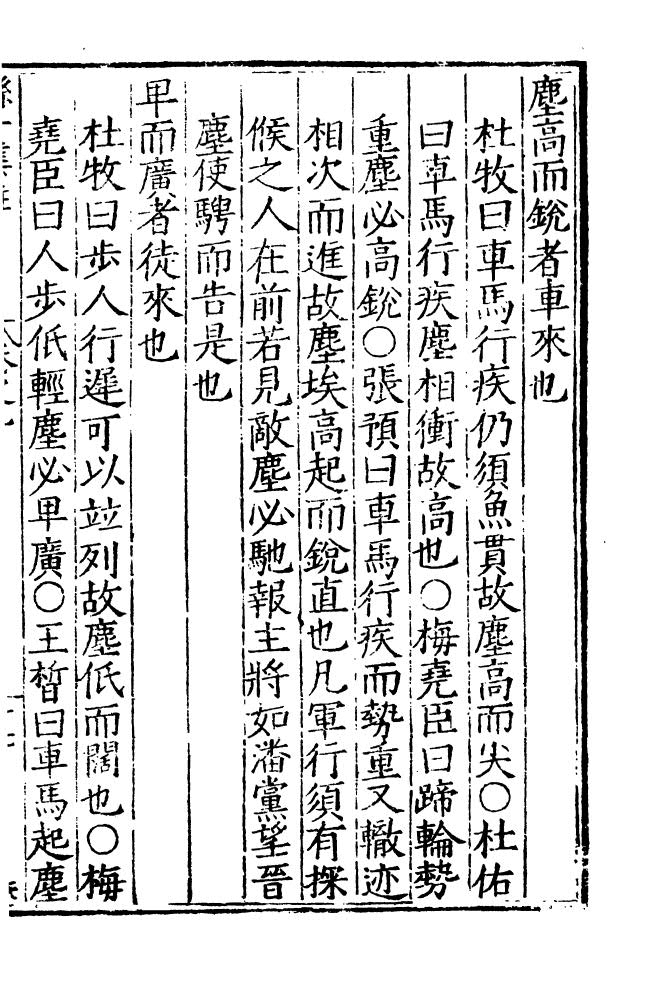 塵高而銳者車來也
杜牧曰車馬行疾仍須魚貫故塵高而尖○杜佑
曰車馬行疾塵相衝故高也○梅堯臣曰蹄輪勢
重塵必高銳○張預曰車馬行疾而勢重又轍迹
相次而進故塵埃高起而銳直也凡軍行須有探
候之人在前若見敵塵必馳報主將如潘黨望晉
塵使騁而告是也
卑而廣者徒來也
杜牧曰步人行遲可以並列故塵低而闊也○梅
堯臣曰人步低輕塵必卑廣○王晳曰車馬起塵